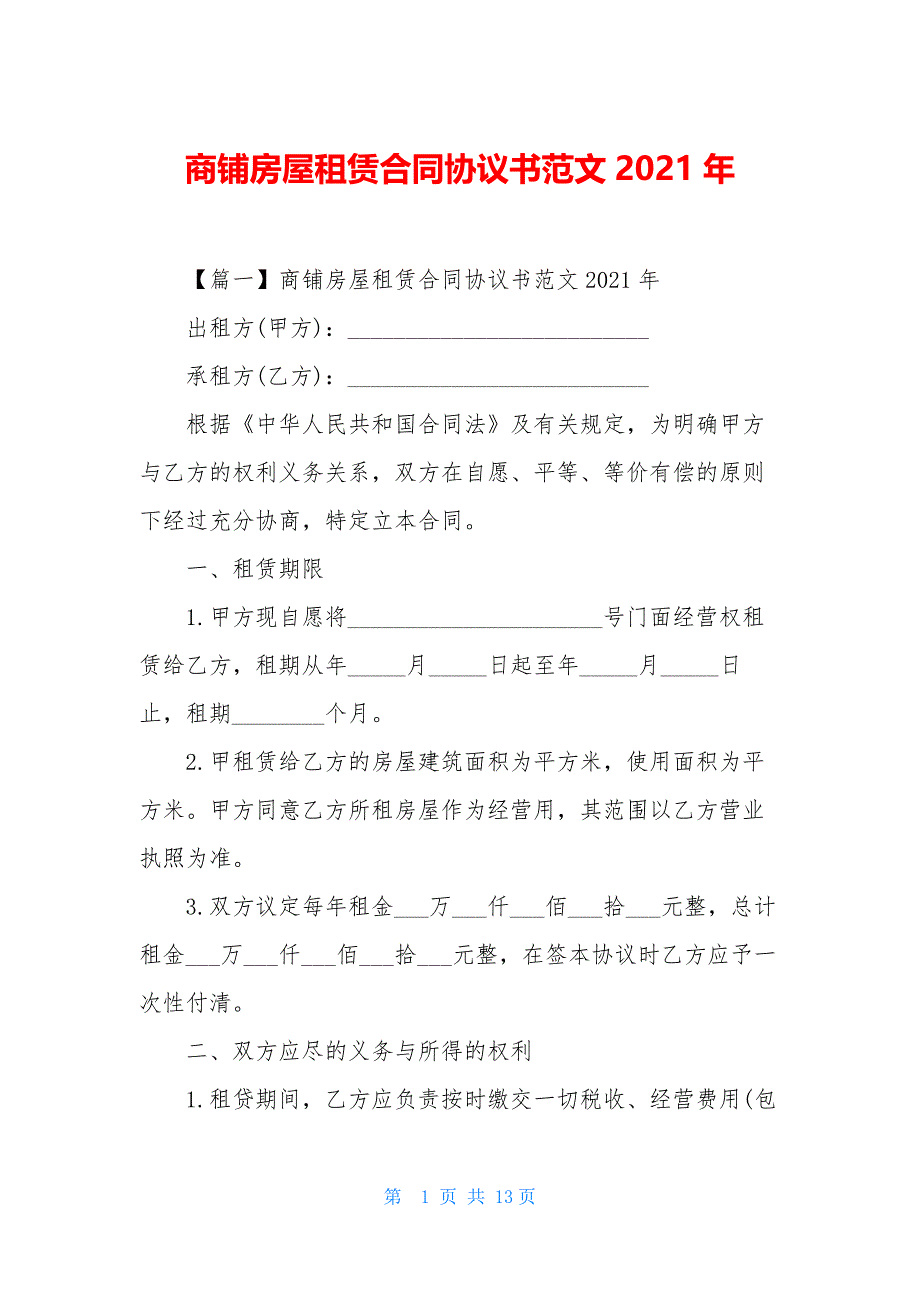 商铺房屋租赁合同协议书范文 2021 年
【篇一】商铺房屋租赁合同协议书范文 2021 年
出租方(甲方)：__________________________
承租方(乙方)：__________________________
根据《中华人民共和国合同法》及有关规定，为明确甲方
与乙方的权利义务关系，双方在自愿、平等、等价有偿的原则
下经过充分协商，特定立本合同。
一、租赁期限
1.甲方现自愿将______________________号门面经营权租
赁给乙方，租期从年_____月_____日起至年_____月_____日
止，租期________个月。
2.甲租赁给乙方的房屋建筑面积为平方米，使用面积为平
方米。甲方同意乙方所租房屋作为经营用，其范围以乙方营业
执照为准。
3.双方议定每年租金___万___仟___佰___拾___元整，总计
租金___万___仟___佰___拾___元整，在签本协议时乙方应予一
次性付清。
二、双方应尽的义务与所得的权利
1.租贷期间，乙方应负责按时缴交一切税收、经营费用(包
第 1 页 共 13页